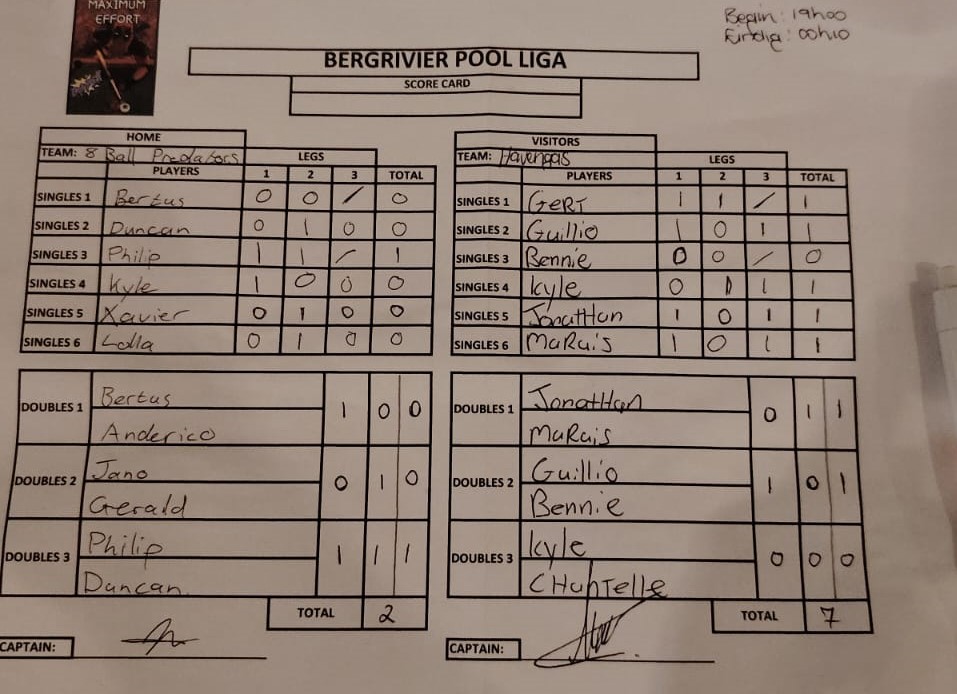 MAXIMUM
EFFORT
Begin: 19h00
Eindig: 00h10
BERGRIVIER POOL LIGA
SCORE CARD
HOME
TEAM: 8 Ball Predators LEGS
PLAYERS 1 2 3 TOTAL
SINGLES 1 Bertus 0 0 / 0
SINGLES 2 Duncan 0 1 0 0
SINGLES 3 Philip 1 1 / 1
SINGLES 4 Kyle 1 0 0 0
SINGLES 5 Xavier 0 1 0 0
SINGLES 6 Lolla 0 1 0 0
DOUBLES 1 Bertus 1 0 0
Anderico
DOUBLES 2 Jano 0 1 0
Gerald
DOUBLES 3 Philip 1 1 1
Duncan
TOTAL 2
CAPTAIN:
VISITORS
TEAM: Havengas LEGS
PLAYERS 1 2 3 TOTAL
SINGLES 1 GeRT 1 1 / 1
SINGLES 2 Guillio 1 0 1 1
SINGLES 3 Bennie 0 0 / 0
SINGLES 4 Kyle 0 1 1 1
SINGLES 5 JonatHan 1 0 1 1
SINGLES 6 MaRais 1 0 1 1
DOUBLES 1 JonatHan 0 1 1
MaRais
DOUBLES 2 Guillio 1 0 1
Bennie
DOUBLES 3 Kyle 0 0 0
CHanTelle
TOTAL 7
CAPTAIN: